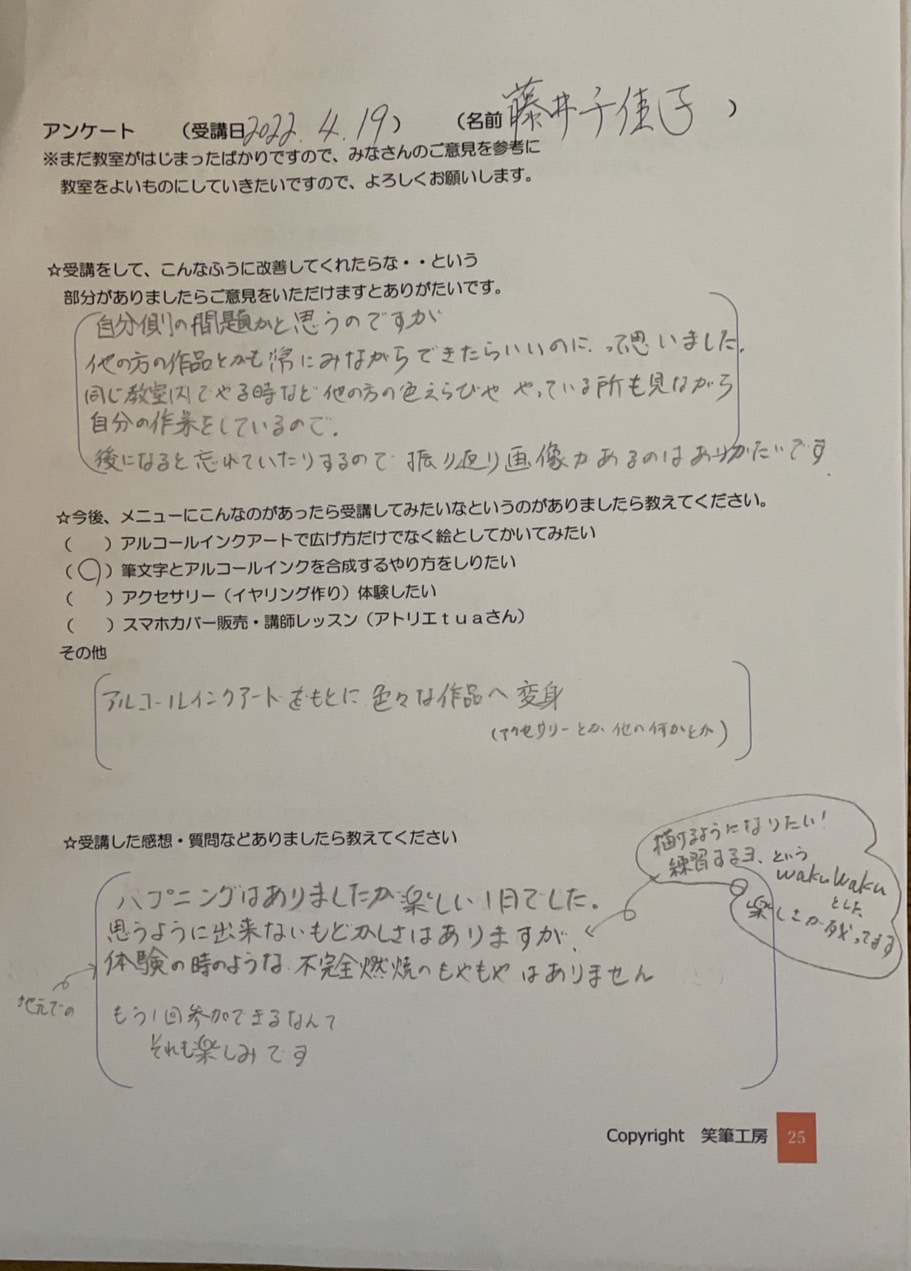 アンケート （受講日2022.4.19） （名前 藤井千佳子 ）
※まだ教室がはじまったばかりですので、みなさんのご意見を参考に
教室をよいものにしていきたいですので、よろしくお願いします。
☆受講をして、こんなふうに改善してくれたらな・・という
部分がありましたらご意見をいただけますとありがたいです。
自分側の問題かと思うのですが
他の方の作品とかも常にみながらできたらいいのに、って思いました。
同じ教室内でやる時など他の方の色えらびや やっている所も見ながら
自分の作業をしているので。
後になると忘れていたりするので 振り返り画像があるのはありがたいです.
☆今後、メニューにこんなのがあったら受講してみたいなというのがありましたら教えてください。
（ ）アルコールインクアートで広げ方だけでなく絵としてかいてみたい
（○）筆文字とアルコールインクを合成するやり方をしりたい
（ ）アクセサリー（イヤリング作り）体験したい
（ ）スマホカバー販売・講師レッスン（アトリエｔｕａさん）
その他
アルコールインクアートをもとに 色々な作品へ変身
（アクセサリーとか 他の何かとか）
☆受講した感想・質問などありましたら教えてください
ハプニングはありましたが楽しい1日でした。
思うように出来ないもどかしさはありますが、
描けるようになりたい！
練習するヨ、という
wakuwaku
とした
楽しさが残ってます
地元での
体験の時のような 不完全燃焼のもやもや はありません
もう1回参加できるなんて
それも楽しみです
Copyright 笑筆工房 25